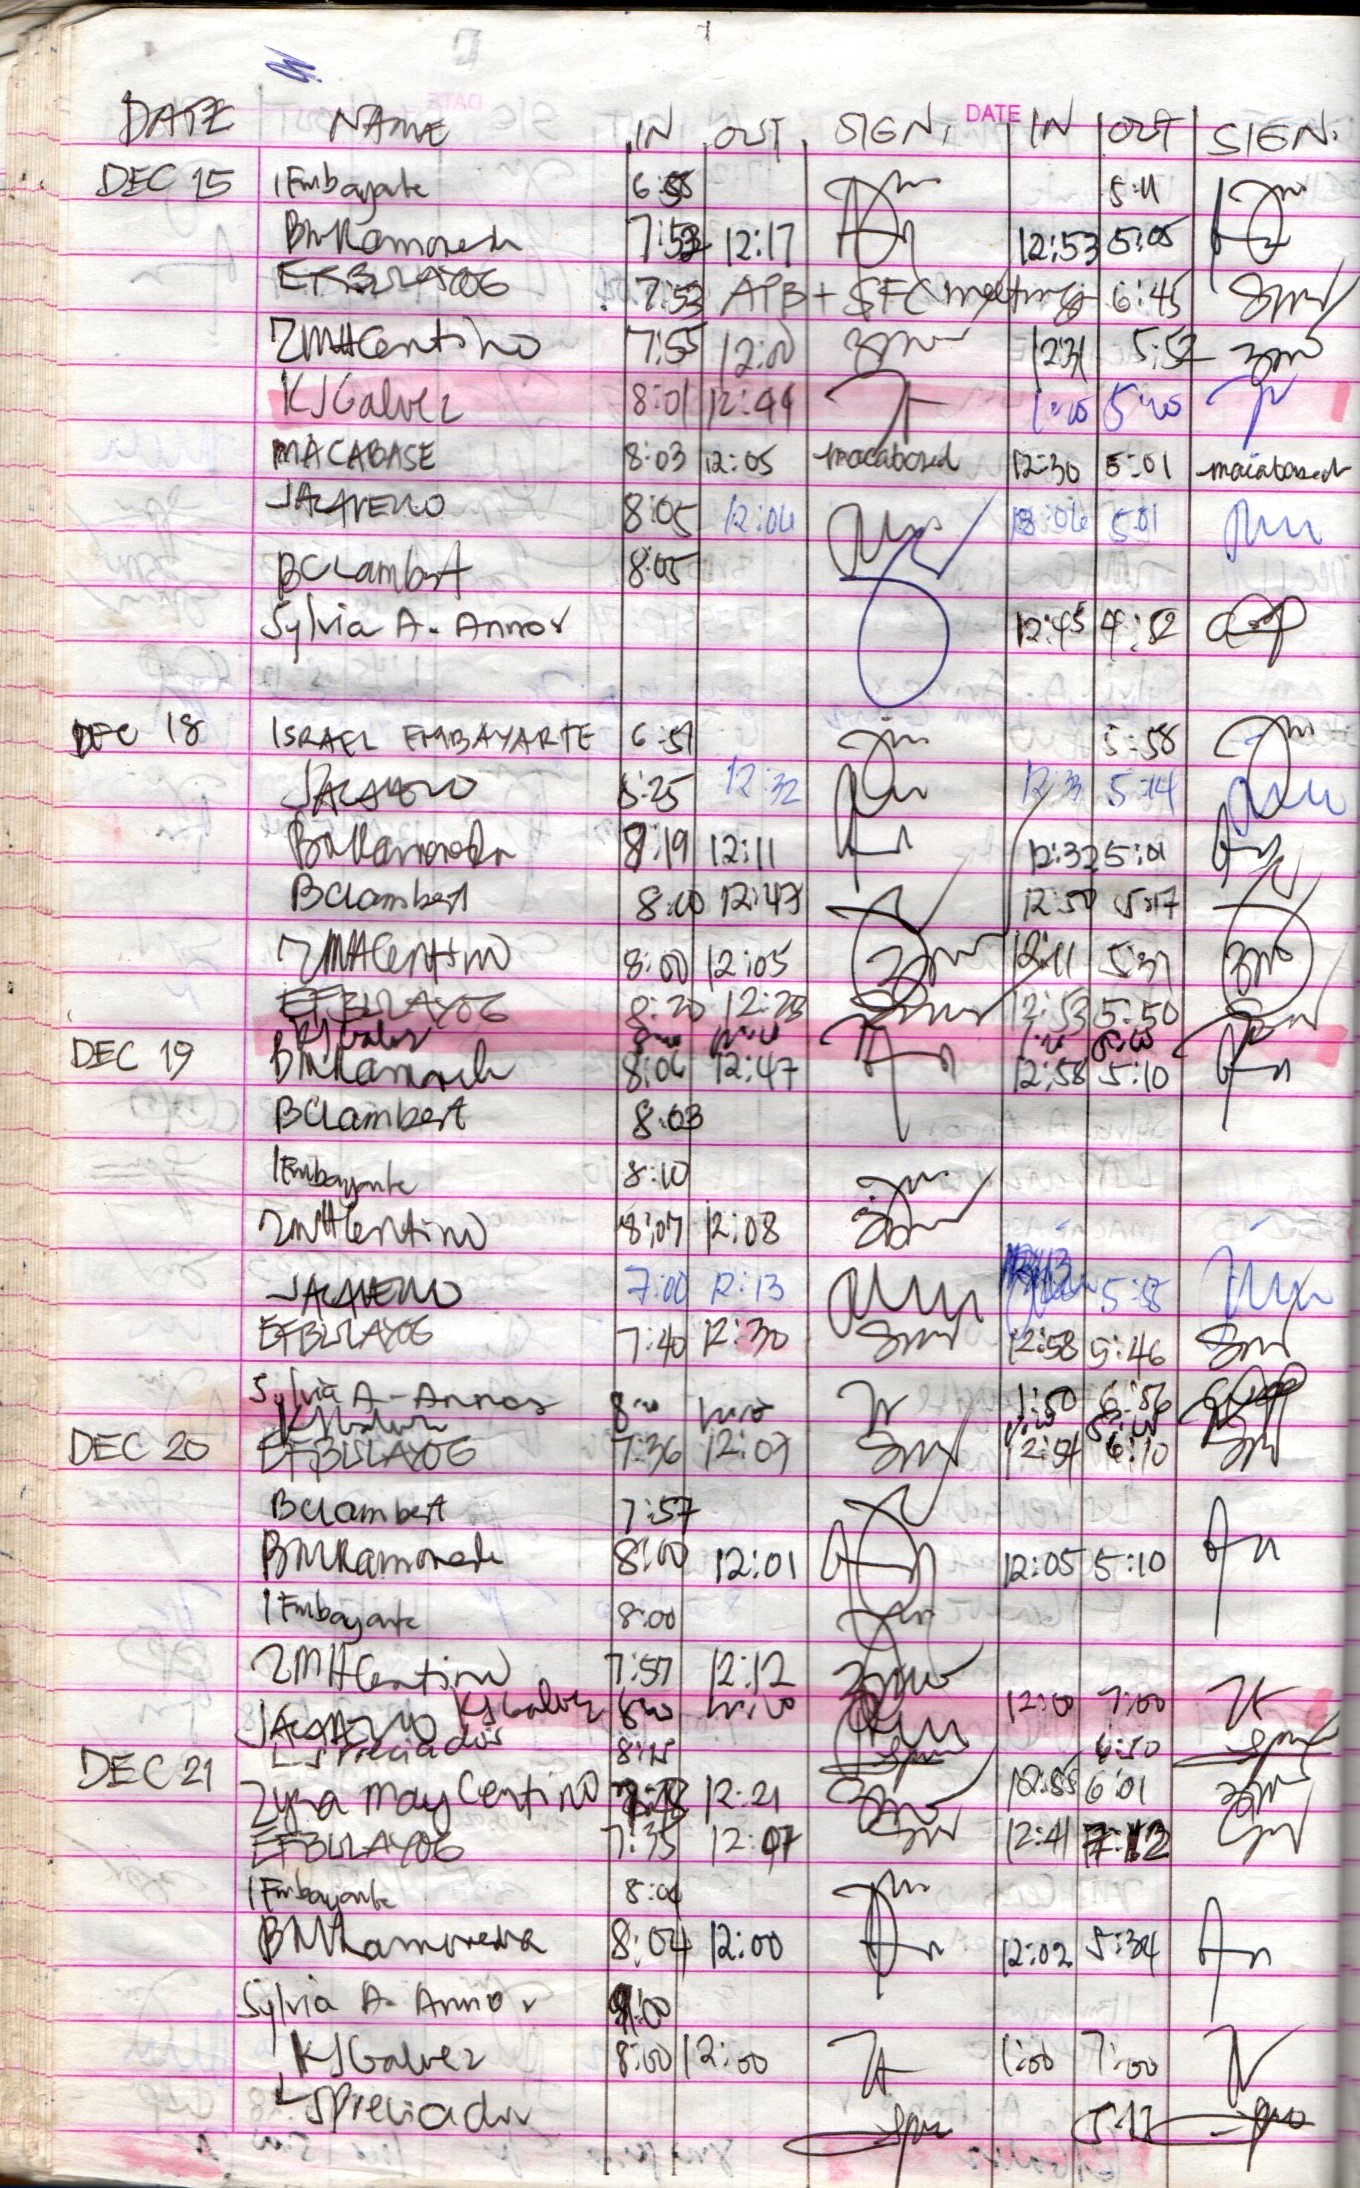 DATE NAME IN OUT SIGN. DATE IN OUT SIGN.
DEC 15 IEmbayarte 6:55 5:11
BMRamoneda 7:53 12:17 12:53 5:05
EFBULAYOG 7:53 APB + SFC meeting 6:45
ZMHCentino 7:55 12:00 12:31 5:52
KJGalvez 8:01 12:44 5:00
MACABASE 8:03 12:05 macabased 12:30 5:01 macabased
8:05 12:06 5:01
BCLambert 8:05
Sylvia A. Annor 12:45 4:52
DEC 18 ISRAEL EMBAYARTE 6:51 5:58
12:32 12:33 5:14
BMRamoneda 8:19 12:11 12:32 5:01
BCLambert 8:00 12:47 12:50 5:17
ZMHCentino 8:00 12:05 12:11 5:37
EFBULAYOG 8:20 12:28 12:53 5:50
KJGalvez
DEC 19 BMRamoneda 8:06 12:47 12:58 5:10
BCLambert 8:03
IEmbayarte 8:10
ZMHCentino 8:07 12:08
7:00 12:13 5:18
EFBULAYOG 7:40 12:30 12:58 5:46
Sylvia A. Annor 1:50 6:56
KJGalvez 8:00
DEC 20 EFBULAYOG 7:36 12:09 12:54 6:10
BCLambert 7:57
BMRamoneda 8:00 12:01 12:05 5:10
IEmbayarte 8:00
ZMHCentino 7:57 12:12
KJGalvez 12:00 7:00
LSPreciador 8:15 6:50
DEC 21 Zyra May Centino 12:21 12:55 6:01
EFBULAYOG 7:35 12:07 12:41 7:12
IEmbayarte 8:04
BMRamoneda 8:04 12:00 12:02 5:34
Sylvia A. Annor
KJGalvez 8:00 12:00 1:00 7:00
LSPreciador